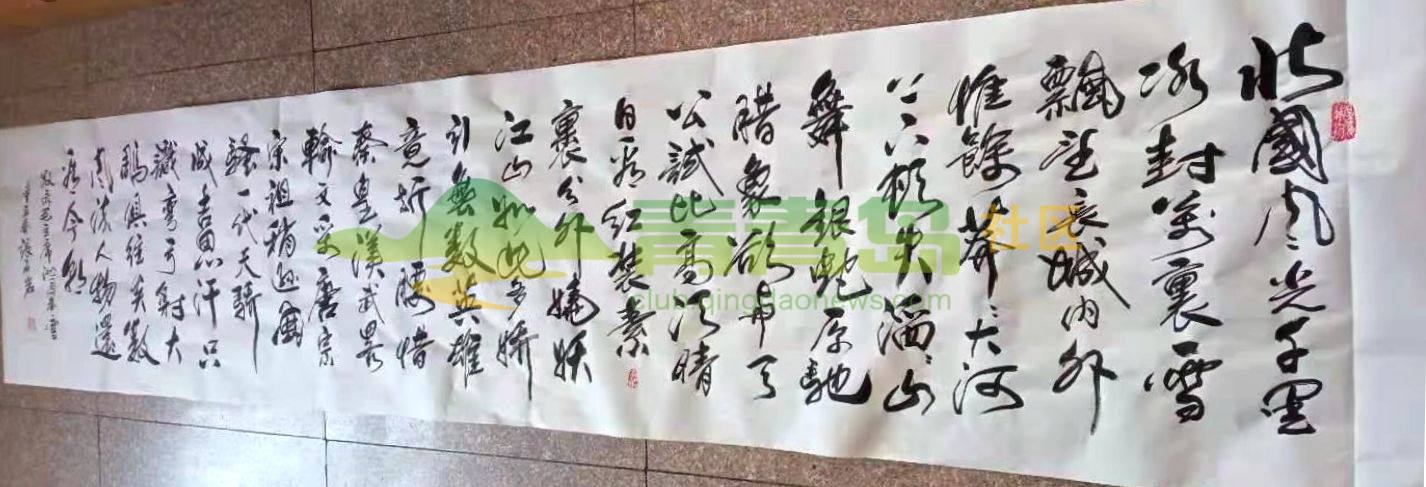 北國風光千里
冰封萬裏雪
飄望長城内外
惟餘莽〻大河
上下頓失滔〻山
舞銀蛇原馳
腊象欲與天
公試比高須晴
日看紅裝素
裹分外嬈妖
江山如此多嬌
引無數英雄
竟折腰惜
秦皇漢武畧
輸文采唐宗
宋祖稍遜風
騷一代天驕
成吉思汗只
識彎弓射大
鵰俱往矣數
風流人物還
看今朝
毛主席沁園春雪
辛丑春張
青青岛社区
club.qingdaonews.com